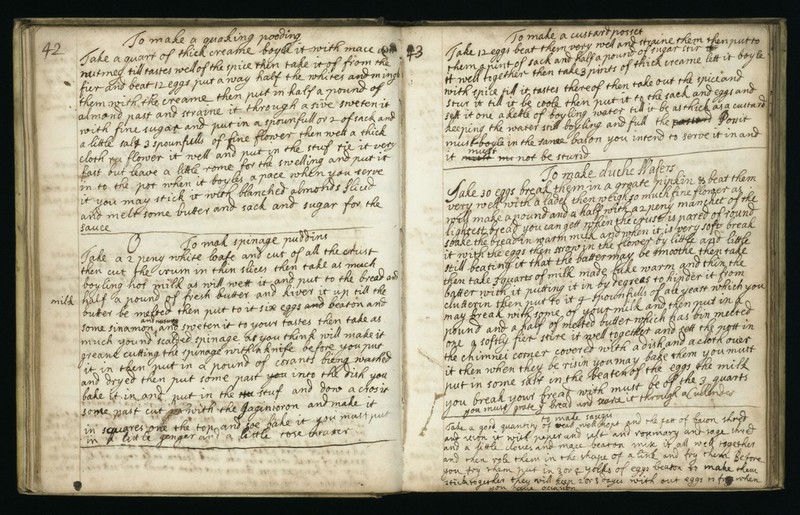 42
To make a quaking pooding
Take a quart of thick creame boyle it with mace
nutmeg till tastes well of the spice then take it of from the
fier and beat 12 eggs put away half the whites and mingle
them with the creame then put in half a pound of
almond past and straine it through a sive sweten it
with fine sugar and put in a spounfull or 2 of sack and
a little salt 3 spounfulls of fine flower then wett a thick
cloth flower it well and put in the stuf tie it very
fast but leave a little rome for the swelling and put it
in to the pot when it boyles a pace when you serve
it you may stick it with blanched almonds sliced
and melt some butter and sack and sugar for the
sauce
To mak spinage puddins
Take a 2 peny white loafe and cut of all the crust
then cut the crum in thin slices then take as much
boyling hot milk as will wett it and put to the bread and
milk half a pound of fresh butter and kiver it up till the
buter be melted then put to it six eggs and beaton and
some sinamon and nutmeg and sweten it to your tastes then take as
much yound scalded spinage as you think will make it
greane cutting the spinage with a knife before you put
it in then put in a pound of corants being washed
and dryed then put some past into the dish you
bake it in and put in the stuf and dow a chosir
some past cut with the and make it
in one the top and soe bake it you must put
in a little genger and a little rose
43
To make a custard possit
Take 12 eggs beat them very well and straine them then put to
them a pint of sack and half a pound of sugar stir
it well together then take 3 pints of thick creame lett it boyle
with spice till it tastes thereof then take out the spice and
stur it till it be coole then put it to the sack and eggs and
sett it one a ketle of boyling water till it be as thick as a custard
keeping the water still boyling and full the possit
must boyle in the same bason you intend to serve it in and
it must not be sturid
To make duche Wafers
Take 30 eggs break them in a greate pipkin & beat them
very well with a ladel then weigh so much fine flower as
will make a pound and a half with a 2 peny manchet of the
lightest bread you can gett when the crust is pared of round
soake the bread in warm milk and when it is very soft break
it with the eggs then strow in the flower by little and little
still beating it that the batter may be smoothe then take
then take 3 quarts of milk made luke warm and thin the
batter with it putting it in by degrees to hinder it from
cluttering then put to it 4 spounfulls of ale yeast which you
may break with some of your milk and then put in a
pound and a half of melted buter which has bin melted
one a softly fier stire it well together and sett the pott in
the chimnei corner covered with a dish and a cloth over
it then when they be risin you may bake them you must
put in some salt in the beateing of the eggs the milk
you break your bread with must be of the 3 quarts
you must grate bread and it through a cullender
to make
Take a good quantity of and the fat of bacon shred
and seson it with peper and salt and rosmary and sage shred
and a little cloves and mace beaton mix it all well together
and then role them in the shape of a link and fry them before
you fry them put in 3 or 4 yolks of eggs beaton to make them
stick together they will keep 2 or 3 dayes with out eggs to fry when
you have occasion